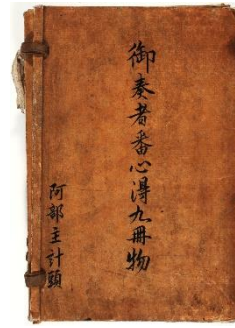 御奏者番心得九冊物
阿部主計頭